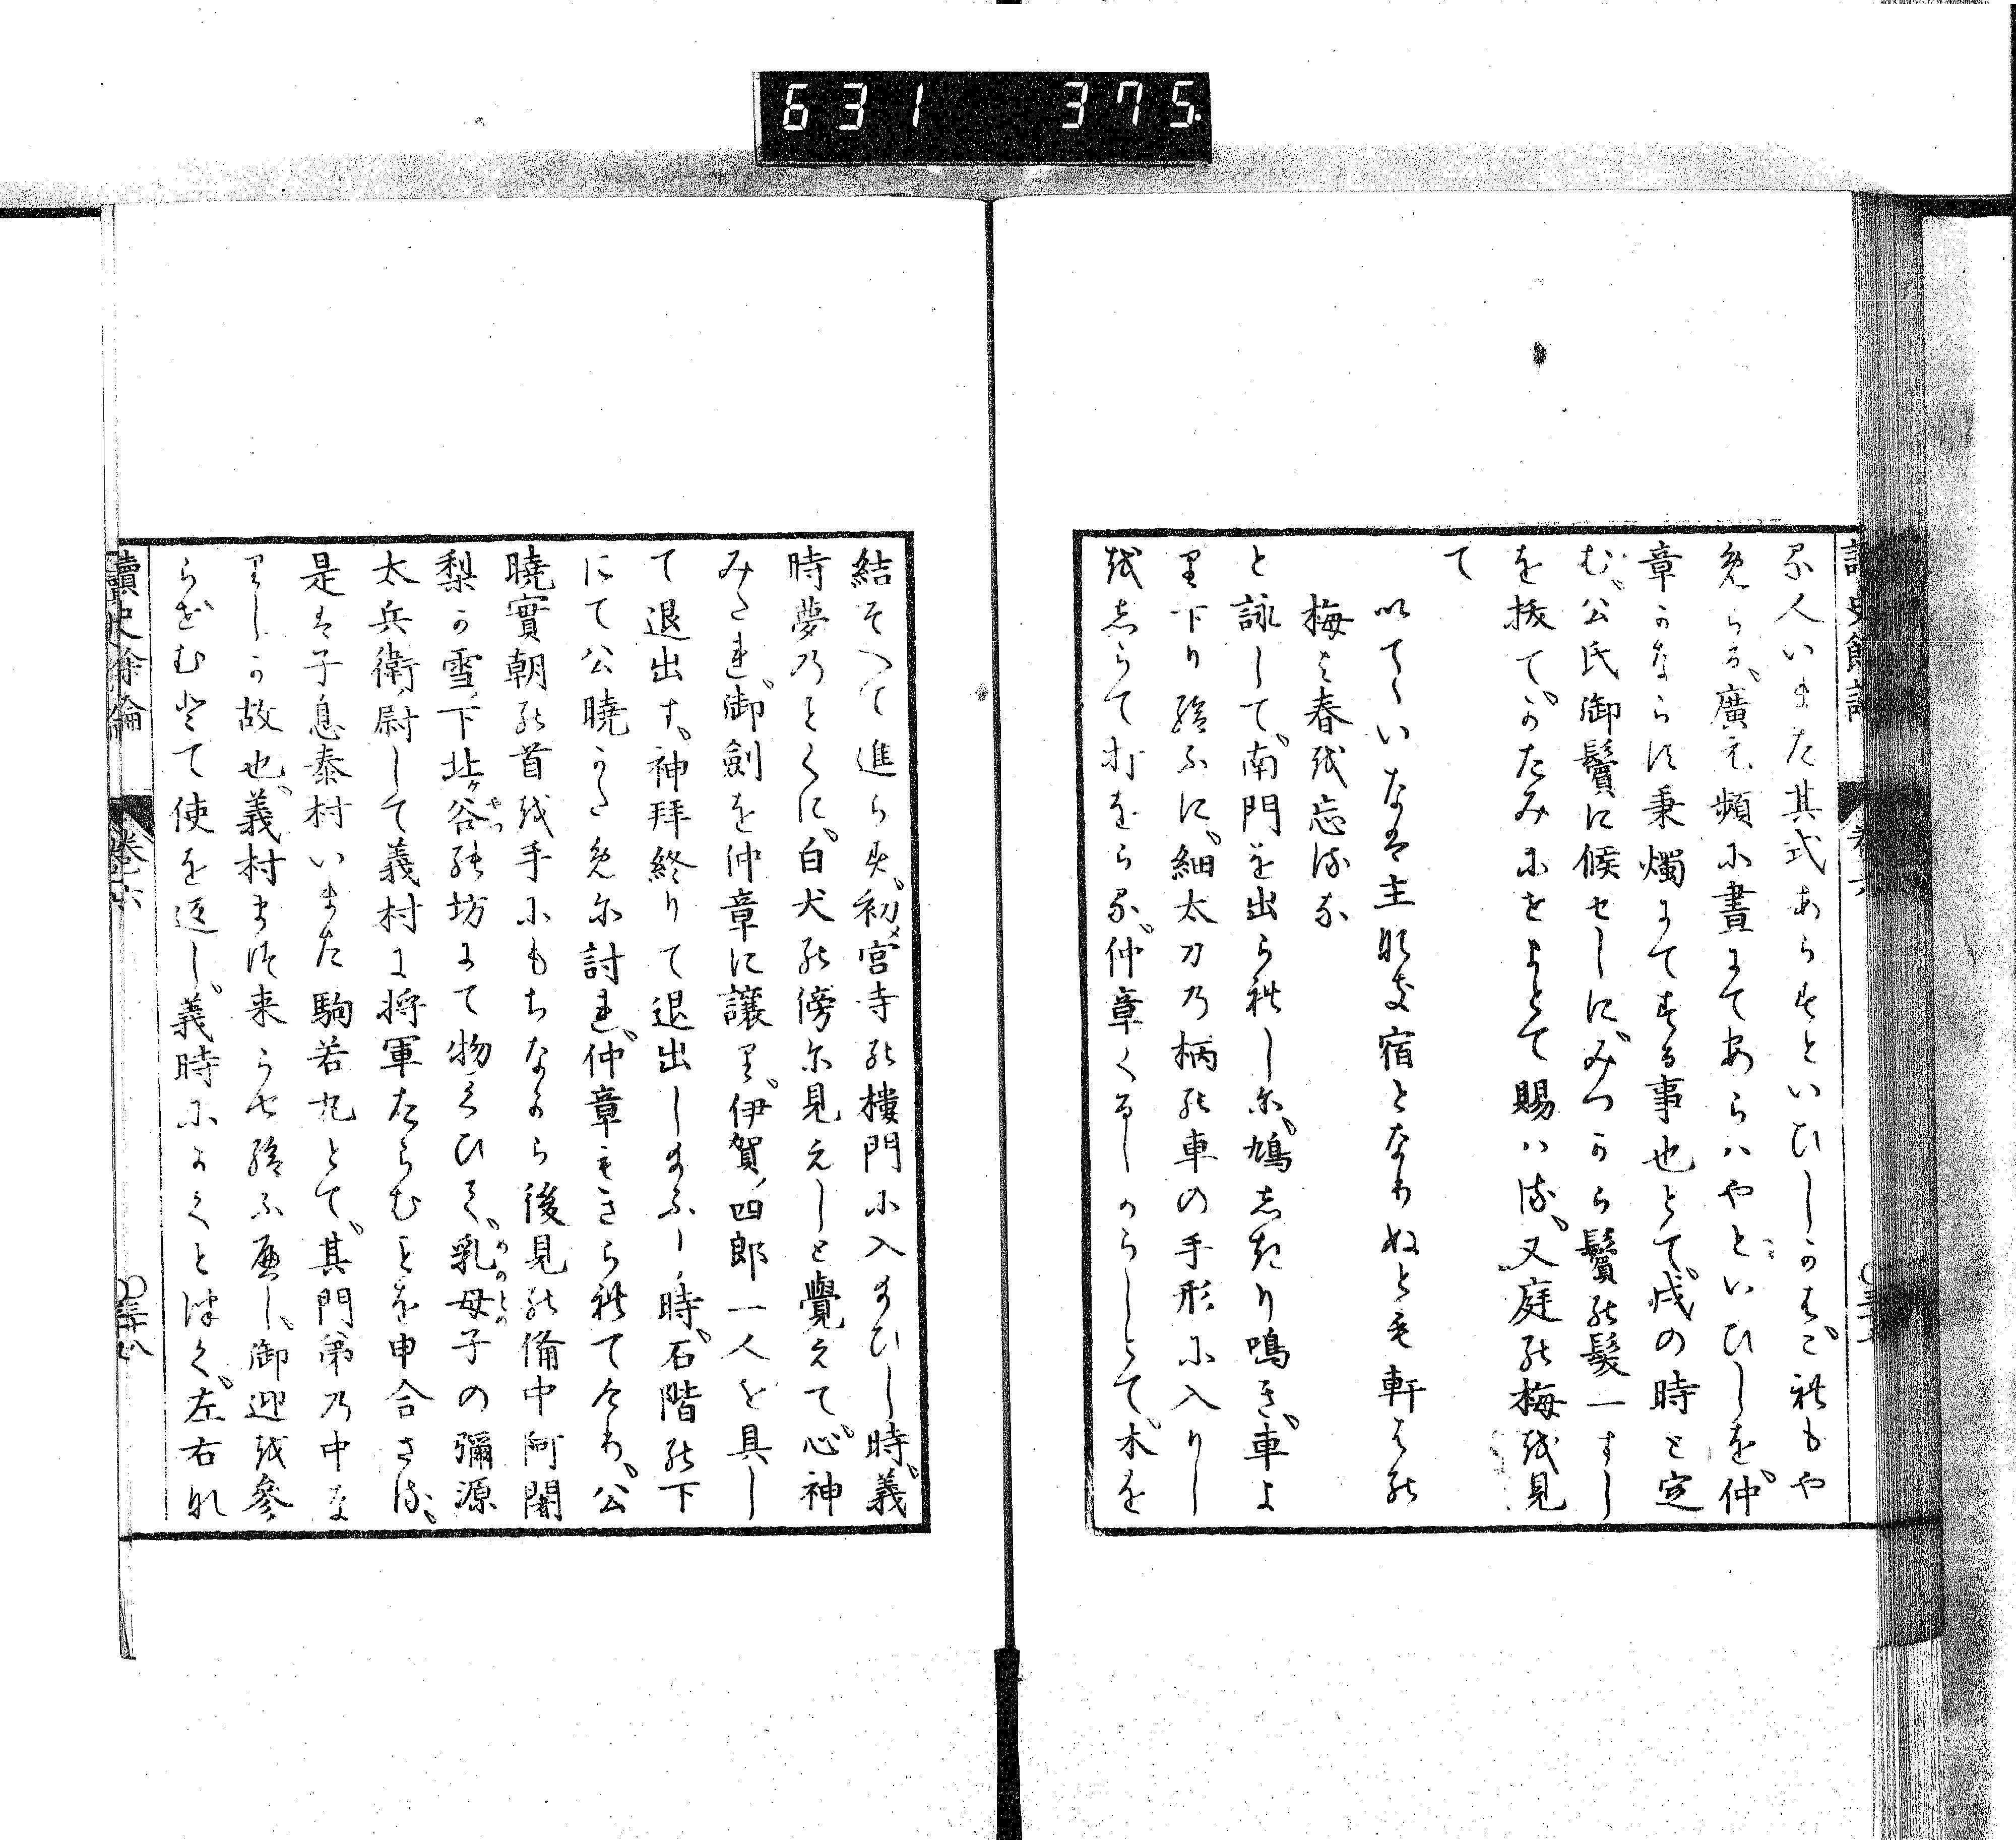 讀史餘論 卷六 〇三十七
る人いまた其式あらすといひしかは、これもや
めらる、廣元頻に晝にてあらハやといひしを、仲
章かならす秉燭にてする事也とて、戌の時と定
む、公氏御鬢に候せしに、みつから鬢の髮一すし
を拔て、かたみにをよとて賜ハる、又庭の梅を見
て
出ていなは主なき宿となりぬとも軒はの
梅よ春を忘るな
と詠して、南門を出られしに、鳩しきり鳴き、車よ
り下り給ふに、細太刀の柄の車の手形に入りし
をしらて打をらる、仲章くるしからしとて、木を
結そへて進らす、初メ宮寺の樓門に入りたまひし時、義
時夢のことくに、白犬の傍に見えしと覺えて、心神
みたれ、御劍を仲章に讓り、伊賀ノ四郎一人を具し
て退出す、神拜終りて退出したまふ時、石階の下
にて公曉かために討れ、仲章もきられてけり、公
曉實朝の首を手にもちなから後見の備中阿闍
梨か雪ノ下北ヶ谷の坊にて物くひて、乳母子の彌源
太兵衛ノ尉して義村に将軍たらむことを申合さる、
是は子息泰村いまた駒若丸とて、其門弟の中な
りしか故也、義村まつ来らせ給ふへし、御迎を參
らせむとて使を返し、義時にかくとつく、左右な
讀史餘論 卷六 〇三十八
631 375